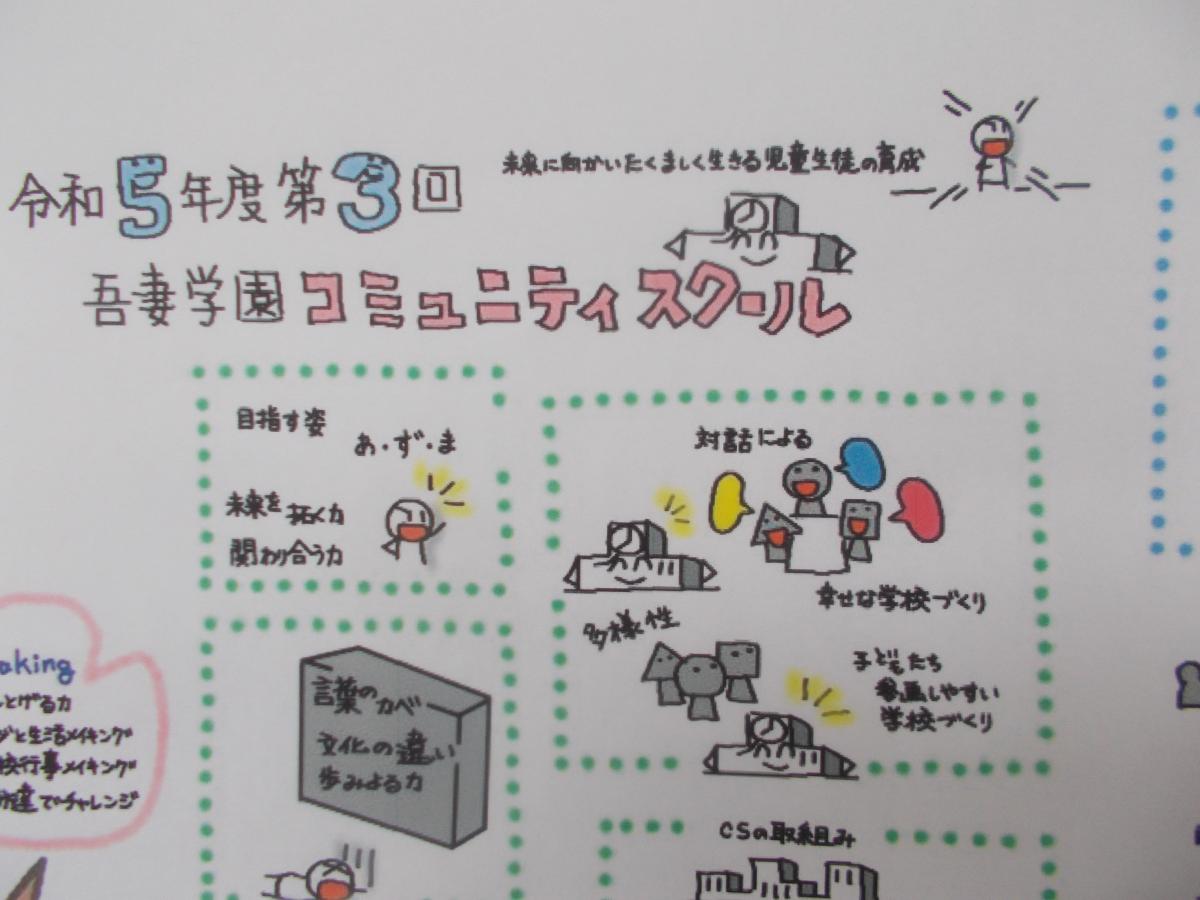 令和5年度第3回
未来に向かいたくましく生きる児童生徒の育成
吾妻学園コミュニティスクール
目指す姿
あ・ず・ま
未来を拓く力
関わり合う力
対話による
幸せな学校づくり
多様性
子どもたち
参画しやすい
学校づくり
言葉のカベ
文化の違い
歩みよる力
aking
とげる力
と生活メイキング
校行事メイキング
でチャレンジ
CSの取組み